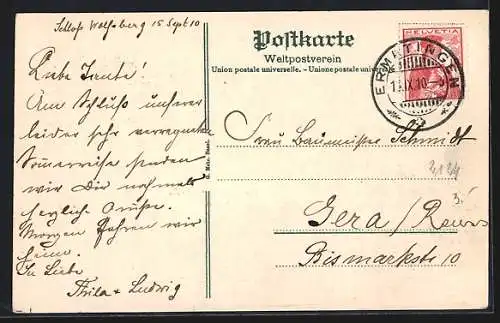 Schloß Wolfsberg 15 Sept 10
Liebe Tante!
Am Schluß unserer
leider sehr verregneten
Sommerreise senden
wir Dir nochmals
herzliche Grüße.
Morgen fahren wir
heim.
In Liebe
Thila + Ludwig
Postkarte
Weltpostverein
Union postale universelle. - Unione postale univer
HELVETIA
ERMATINGEN
IX.10
Frau Baumeister Schmidt
2124
3.-
Gera / Reuss
Bismarkstr 10